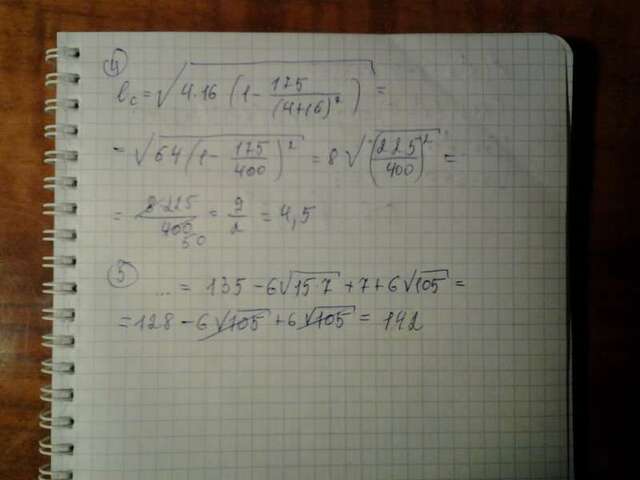 4
lc = √(4·16 (1 - 175/(4+16)²)) =
= √(64 (1 - 175/400)²) = 8 √((225/400)²) =
= 8·225/400 50 = 9/2 = 4,5
5
... = 135 - 6√(15·7) + 7 + 6√105 =
= 128 - 6√105 + 6√105 = 142